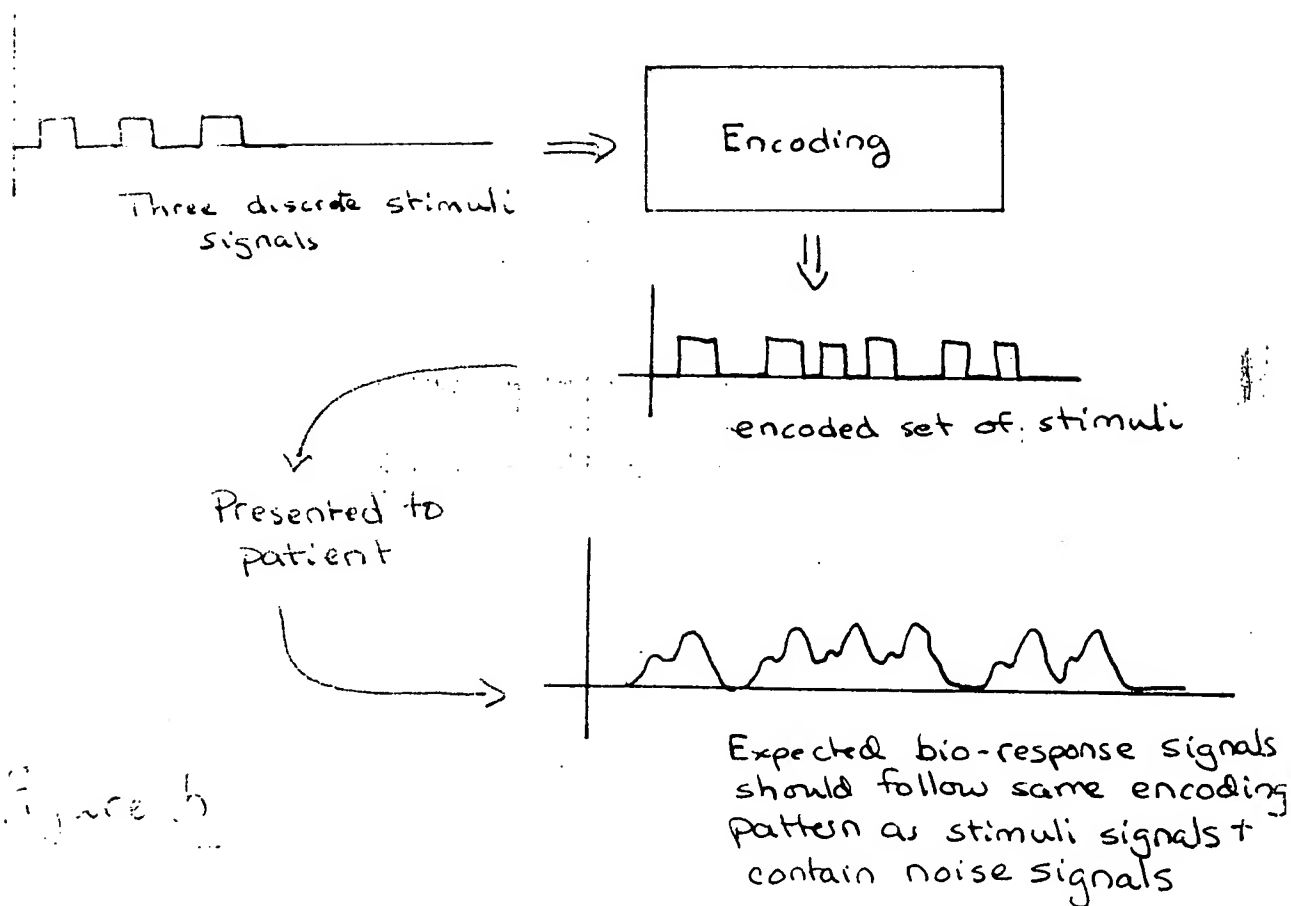 Three discrete stimuli
signals
Encoding
encoded set of stimuli
Presented to
patient
Expected bio-response signals
should follow same encoding
pattern as stimuli signals +
contain noise signals